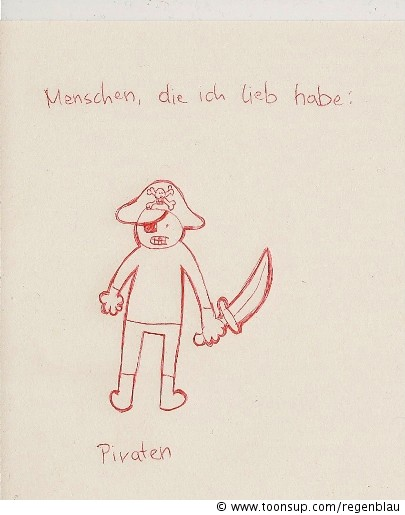 Menschen, die ich lieb habe:
Piraten
© www.toonsup.com/regenblau